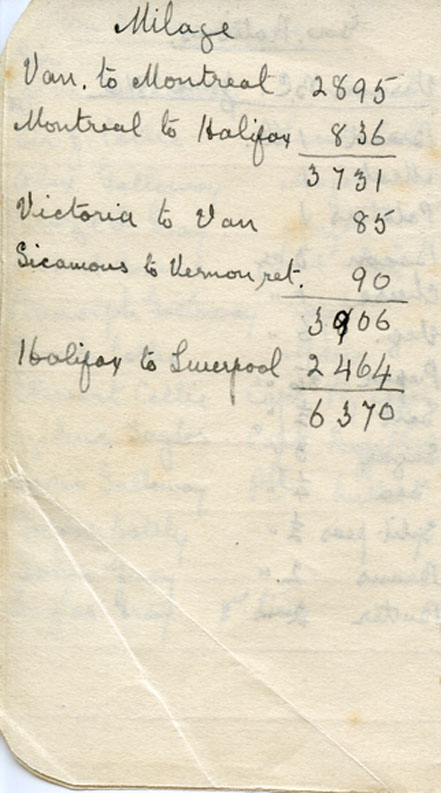 Milage
Van. to Montreal 2895
Montreal to Halifax 836
3731
Victoria to Van 85
Sicamous to Vernon ret. 90
3906
Halifax to Liverpool 2464
6370